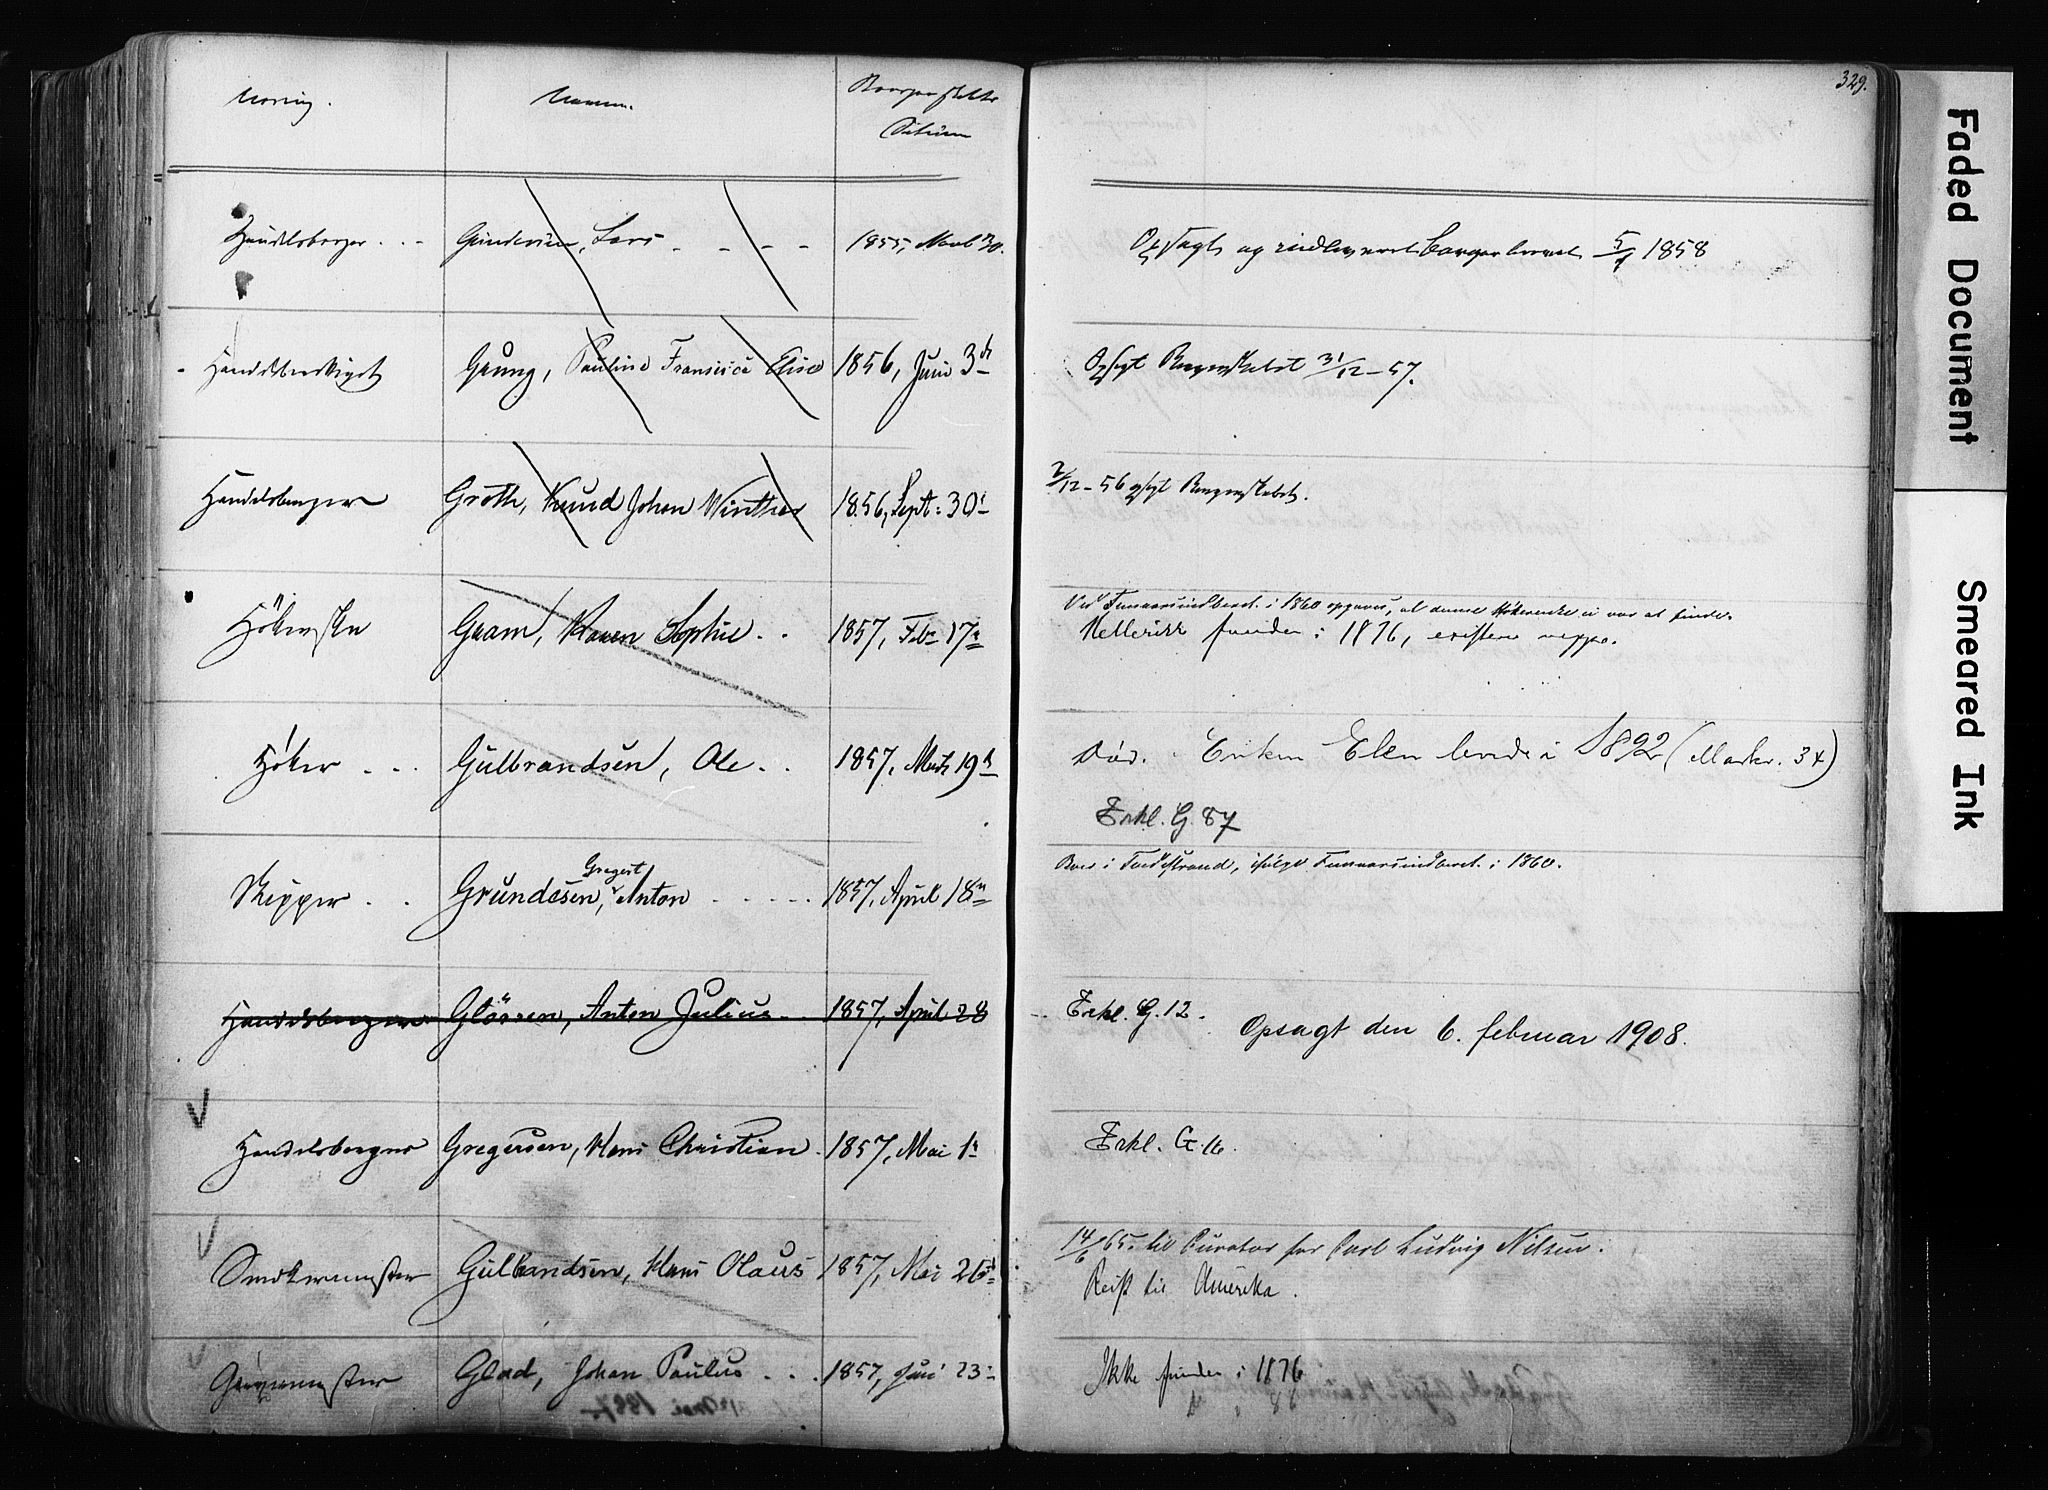 329.
Næring. Navn. Borgerskabets Datum
Handelsborger Gundersen, Lars 1855, 30.
Opsagt og indleveret Borgerbrevet 5/1 1858
Grung, Pauline Francisca Elise 1856, Juni 3de
Opsagt Borgerskabet 31/12-57.
Handelsborger Groth, Knud Johan Winther 1856, Sept: 30te
2/12-56 opsagt Borgerskabet.
Ved Januarsindberet. i 1860 opgaves, at denne Hökerenke ei var at finde.
Hökerske Gram, Karen Sophie 1857, Febr 17de
Hellerikk funden i 1876, existere neppe.
Höker Gulbrandsen, Ole 1857, Marts 19de
Död. Enken Elen levede i 1892 (Markv. 34)
Erkl. G. 87
Boer i Tvedestrand, ifölge Januarsindberet. i 1860.
Gregert
Skipper Grundesen, Anton 1857, April 18de
Handelsborger Glörsen, Anton Julius 1857, April 28
Erkl. G. 12. Opsagt den 6. februar 1908.
Handelsborger Gregersen, Hans Christian 1857, Mai 1te
Erkl. G. 16.
14/6 65. til Curator for Carl Ludvig Nilsen.
Snedkermester Gulbrandsen, Hans Olaus 1857, Mai 26de
Reist til Amerika.
Glad, Johan Paulus 1857, Juni 23
Ikke funden i 1876
do " 86
Faded Document
Smeared Ink